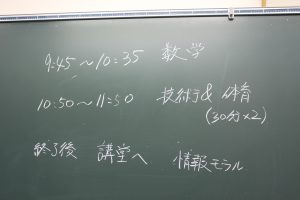 9:45〜10:35 数学
10:50〜11:50 技術 & 体育
(30分×2)
終了後 講堂へ 情報モラル